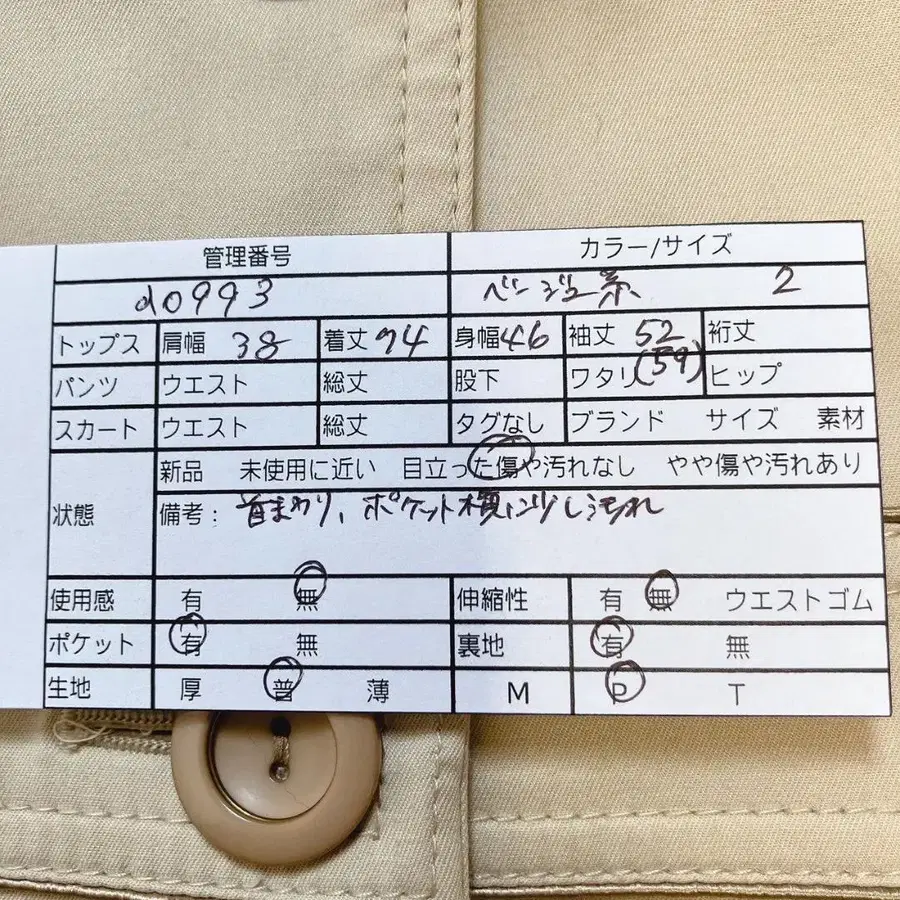 管理番号 カラー/サイズ
d0993 ベージュ系 2
トップス 肩幅 38 着丈 74 身幅 46 袖丈 52 (59) 裄丈
パンツ ウエスト 総丈 股下 ワタリ ヒップ
スカート ウエスト 総丈 タグなし ブランド サイズ 素材
状態 新品 未使用に近い 目立った傷や汚れなし やや傷や汚れあり
備考: 首まわり、ポケット横に少し汚れ
使用感 有 無 伸縮性 有 無 ウエストゴム
ポケット 有 無 裏地 有 無
生地 厚 普 薄 M P T